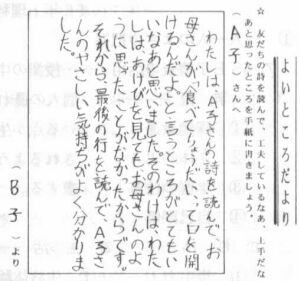 よいところだより
☆ 友だちの詩を読んで、工夫しているなあ、上手だな
あと思ったところを手紙に書きましょう。
(A子)さんへ
わたしは、A子さんの詩を読んで、お
母さんが「食べてしょうだい」と口を開
けるんだよ。」と言うところがとてもい
いなあと思いました。そのわけは、わた
しはあけびを見てもお母さんのよ
うに思ったことがなかったからです。
それから、最後の行を読んで、A子さ
んのやさしい気持ちがよく分かりま
した。
(B子)より